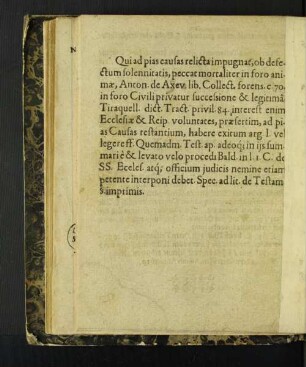 Qui ad pias causas relicta impugnat, ob defe-
ctum solennitatis, peccat mortaliter in foro ani-
mæ, Anton. de Axev. lib. Collect. forens. c 70.
in foro Civili privatur successione & legitimâ
Tiraquell. dict. Tract privil. 84. interest enim
Ecclesiæ & Reip. voluntates, præsertim, ad pi-
as Causas testantium, habere exitum arg l. vel
legere ff. Quemadm. Test ap. adeoq; in ijs sum
mariè & levato velo procedi Bald in l. 1. C. de
SS. Eccles. atq; officium judicis nemine etiam
petente interponi debet. Spec. ad lit. de Testam
s. imprimis.